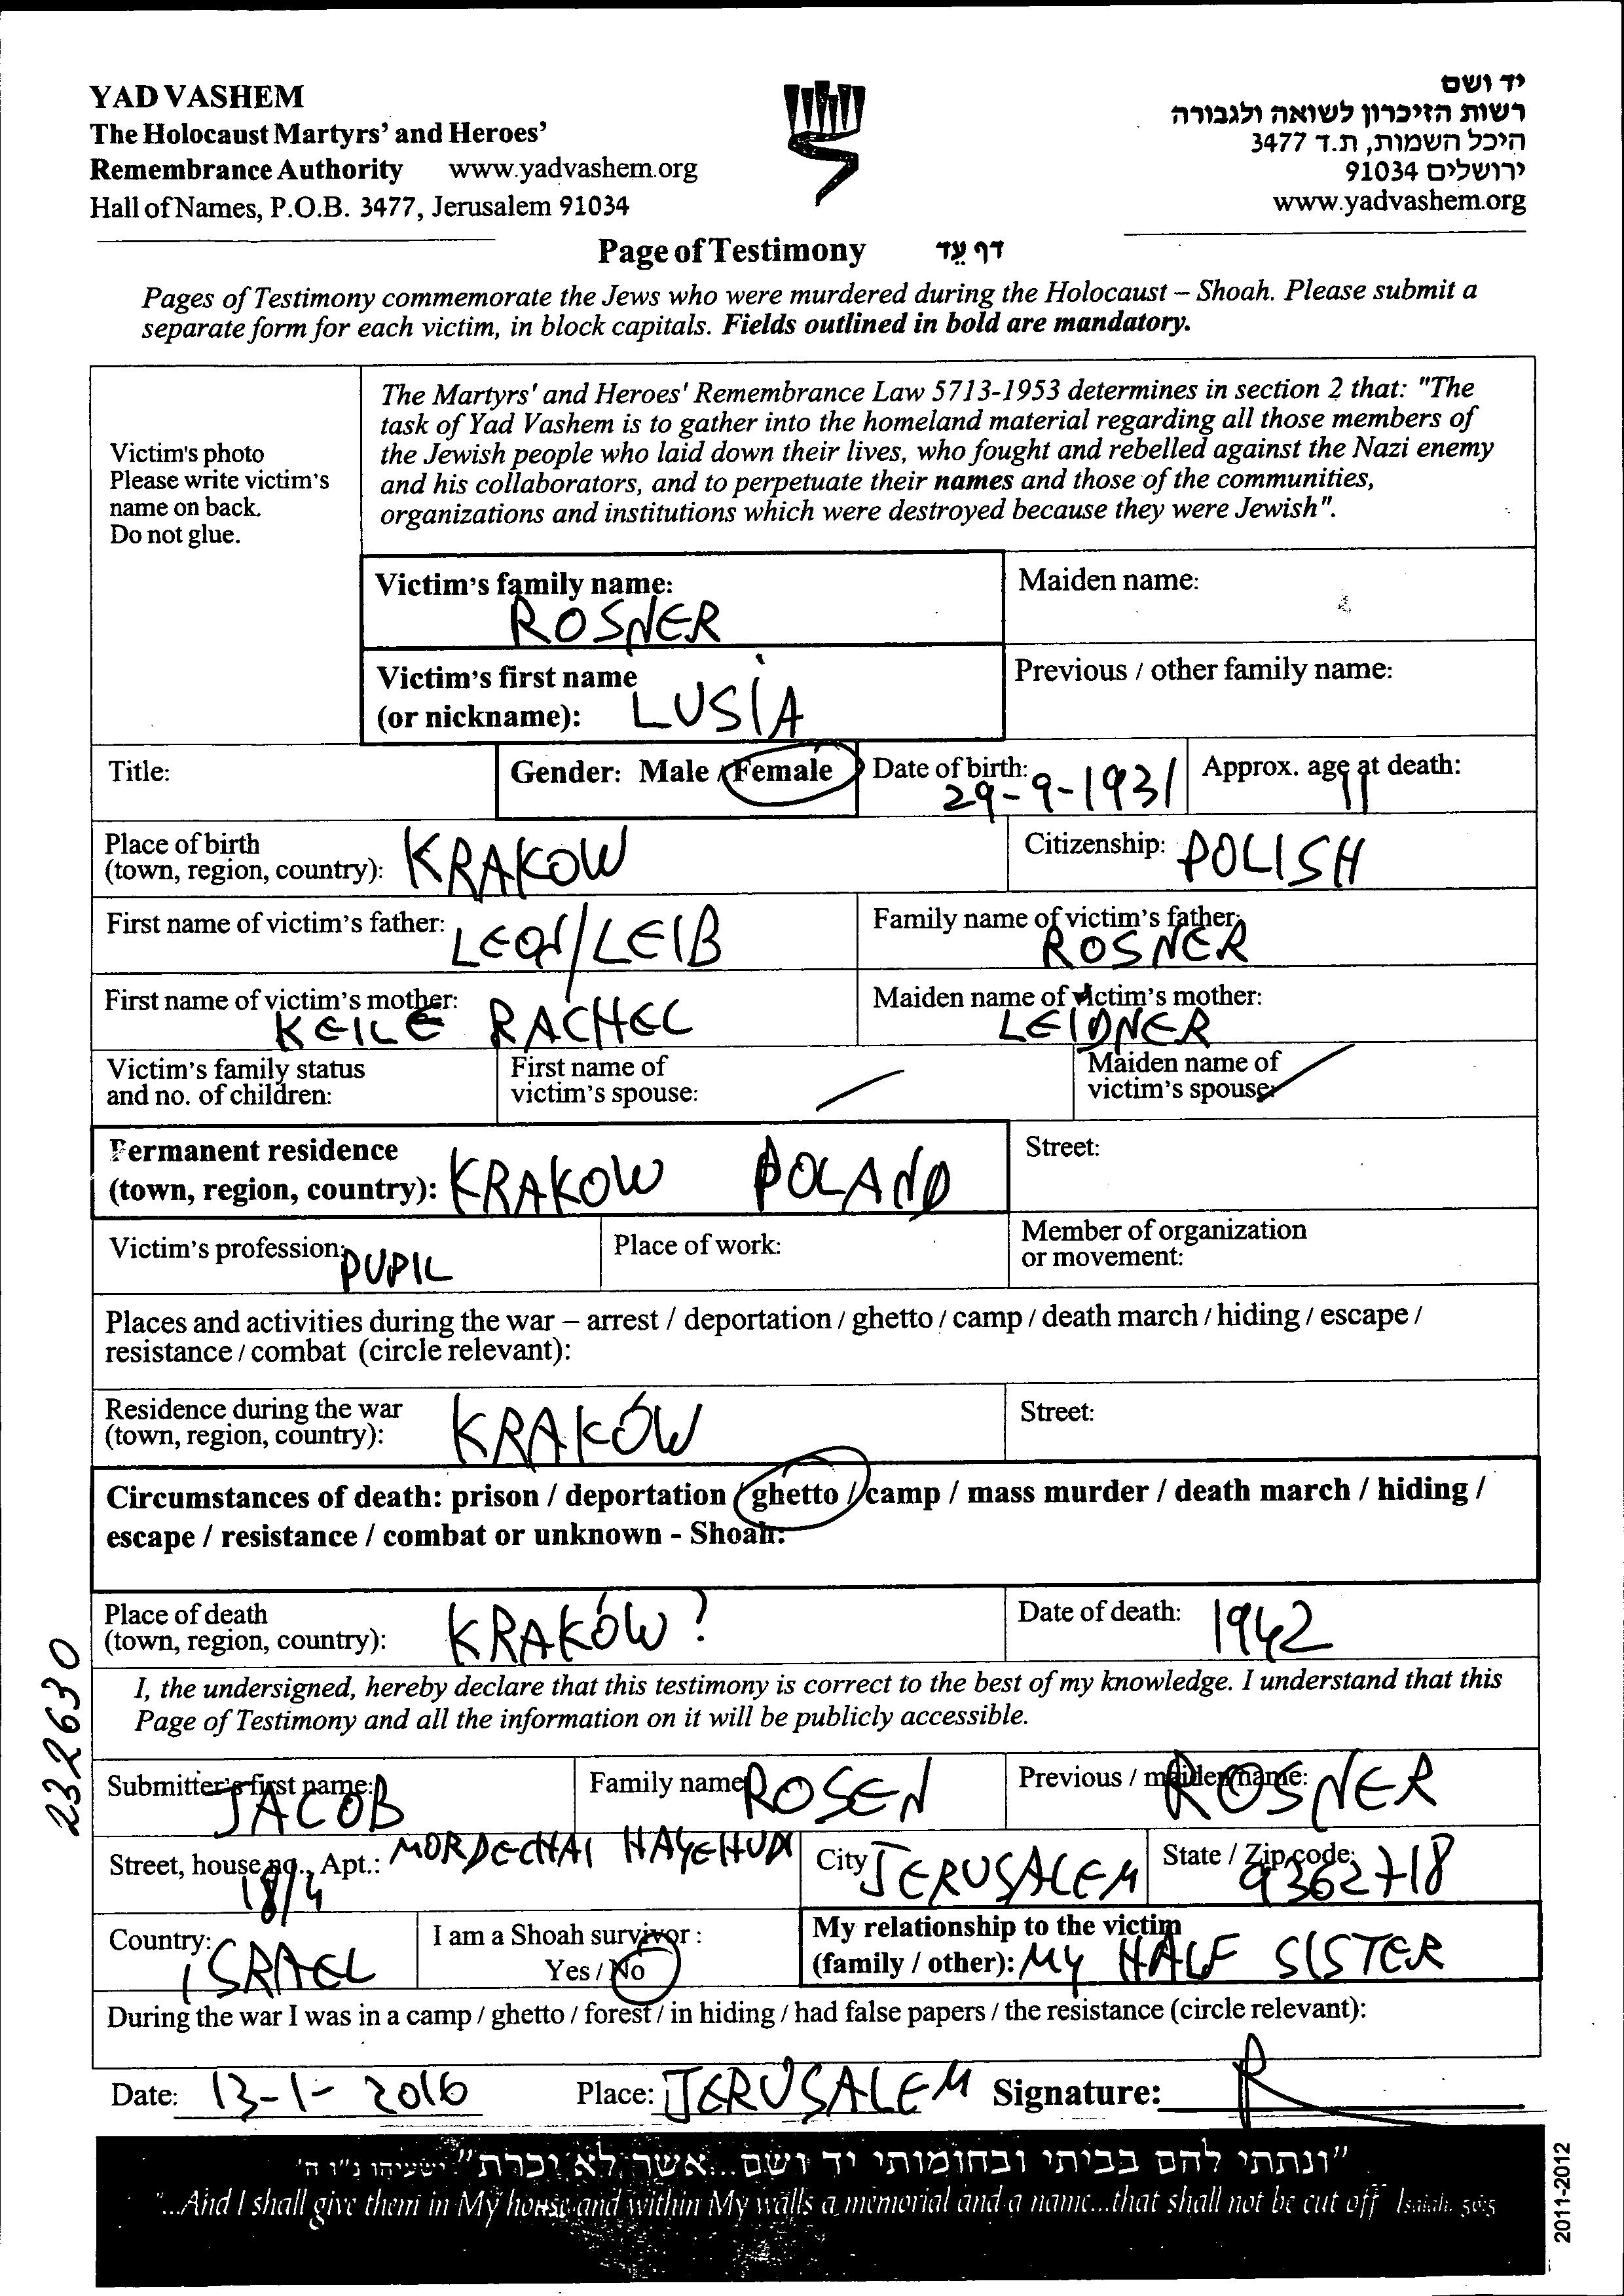 YAD VASHEM
The Holocaust Martyrs' and Heroes'
Remembrance Authority www.yadvashem.org
Hall of Names, P.O.B. 3477, Jerusalem 91034
יד ושם
רשות הזיכרון לשואה ולגבורה
היכל השמות, ת.ד 3477
ירושלים 91034
www.yadvashem.org
Page of Testimony דף עֵד
Pages of Testimony commemorate the Jews who were murdered during the Holocaust – Shoah. Please submit a
separate form for each victim, in block capitals. Fields outlined in bold are mandatory.
Victim's photo
Please write victim's
name on back.
Do not glue.
The Martyrs' and Heroes' Remembrance Law 5713-1953 determines in section 2 that: "The
task of Yad Vashem is to gather into the homeland material regarding all those members of
the Jewish people who laid down their lives, who fought and rebelled against the Nazi enemy
and his collaborators, and to perpetuate their names and those of the communities,
organizations and institutions which were destroyed because they were Jewish".
Victim's family name:
ROSNER
Maiden name:
Victim's first name
(or nickname): LUSIA
Previous / other family name:
Title:
Gender: Male / Female
Date of birth:
29-9-1931
Approx. age at death:
11
Place of birth
(town, region, country): KRAKOW
Citizenship: POLISH
First name of victim's father: LEON/LEIB
Family name of victim's father:
ROSNER
First name of victim's mother:
KEILE RACHEL
Maiden name of victim's mother:
LEIDNER
Victim's family status
and no. of children:
First name of
victim's spouse:
Maiden name of
victim's spouse:
Permanent residence
(town, region, country): KRAKOW POLAND
Street:
Victim's profession: PUPIL
Place of work:
Member of organization
or movement:
Places and activities during the war – arrest / deportation / ghetto / camp / death march / hiding / escape /
resistance / combat (circle relevant):
Residence during the war
(town, region, country): KRAKÓW
Street:
Circumstances of death: prison / deportation / ghetto / camp / mass murder / death march / hiding /
escape / resistance / combat or unknown - Shoah:
Place of death
(town, region, country): KRAKÓW?
Date of death: 1942
I, the undersigned, hereby declare that this testimony is correct to the best of my knowledge. I understand that this
Page of Testimony and all the information on it will be publicly accessible.
Submitter's first name:
JACOB
Family name: ROSEN
Previous / maiden name:
ROSNER
Street, house no., Apt.: MORDECHAI HAYEHUDI
18/4
City: JERUSALEM
State / Zip code:
9362718
Country: ISRAEL
I am a Shoah survivor :
Yes / No
My relationship to the victim
(family / other): MY HALF SISTER
During the war I was in a camp / ghetto / forest / in hiding / had false papers / the resistance (circle relevant):
Date: 13-1-2016 Place: JERUSALEM Signature:
"ונתתי להם בביתי ובחומותי יד ושם...אשר לא יכרת" ישעיהו נ"ו ה'
"...And I shall give them in My house and within My walls a memorial and a name...that shall not be cut off" Isaiah. 56:5
232630
2011-2012